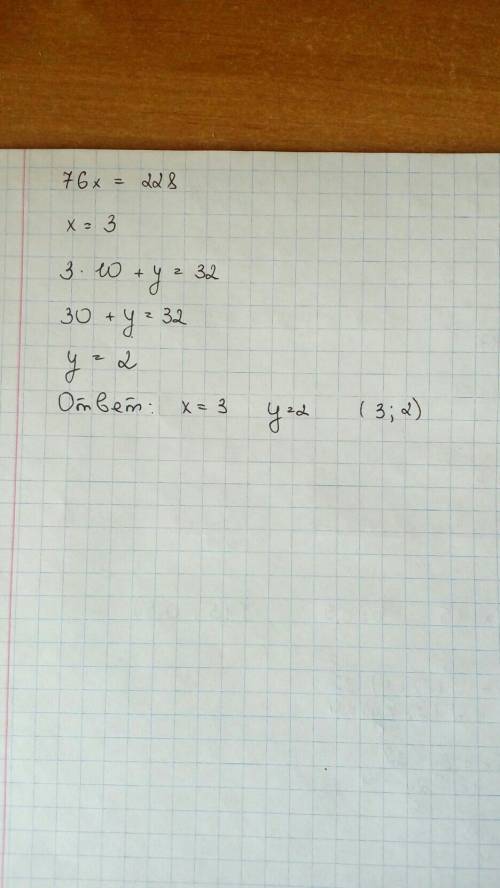 76x = 228
x = 3
3 · 10 + y = 32
30 + y = 32
y = 2
Ответ: x = 3 y = 2 (3; 2)